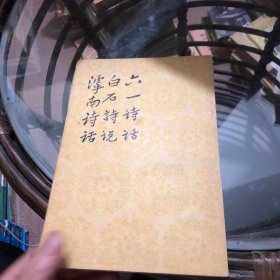 六一诗话
白石诗说
滹南诗话